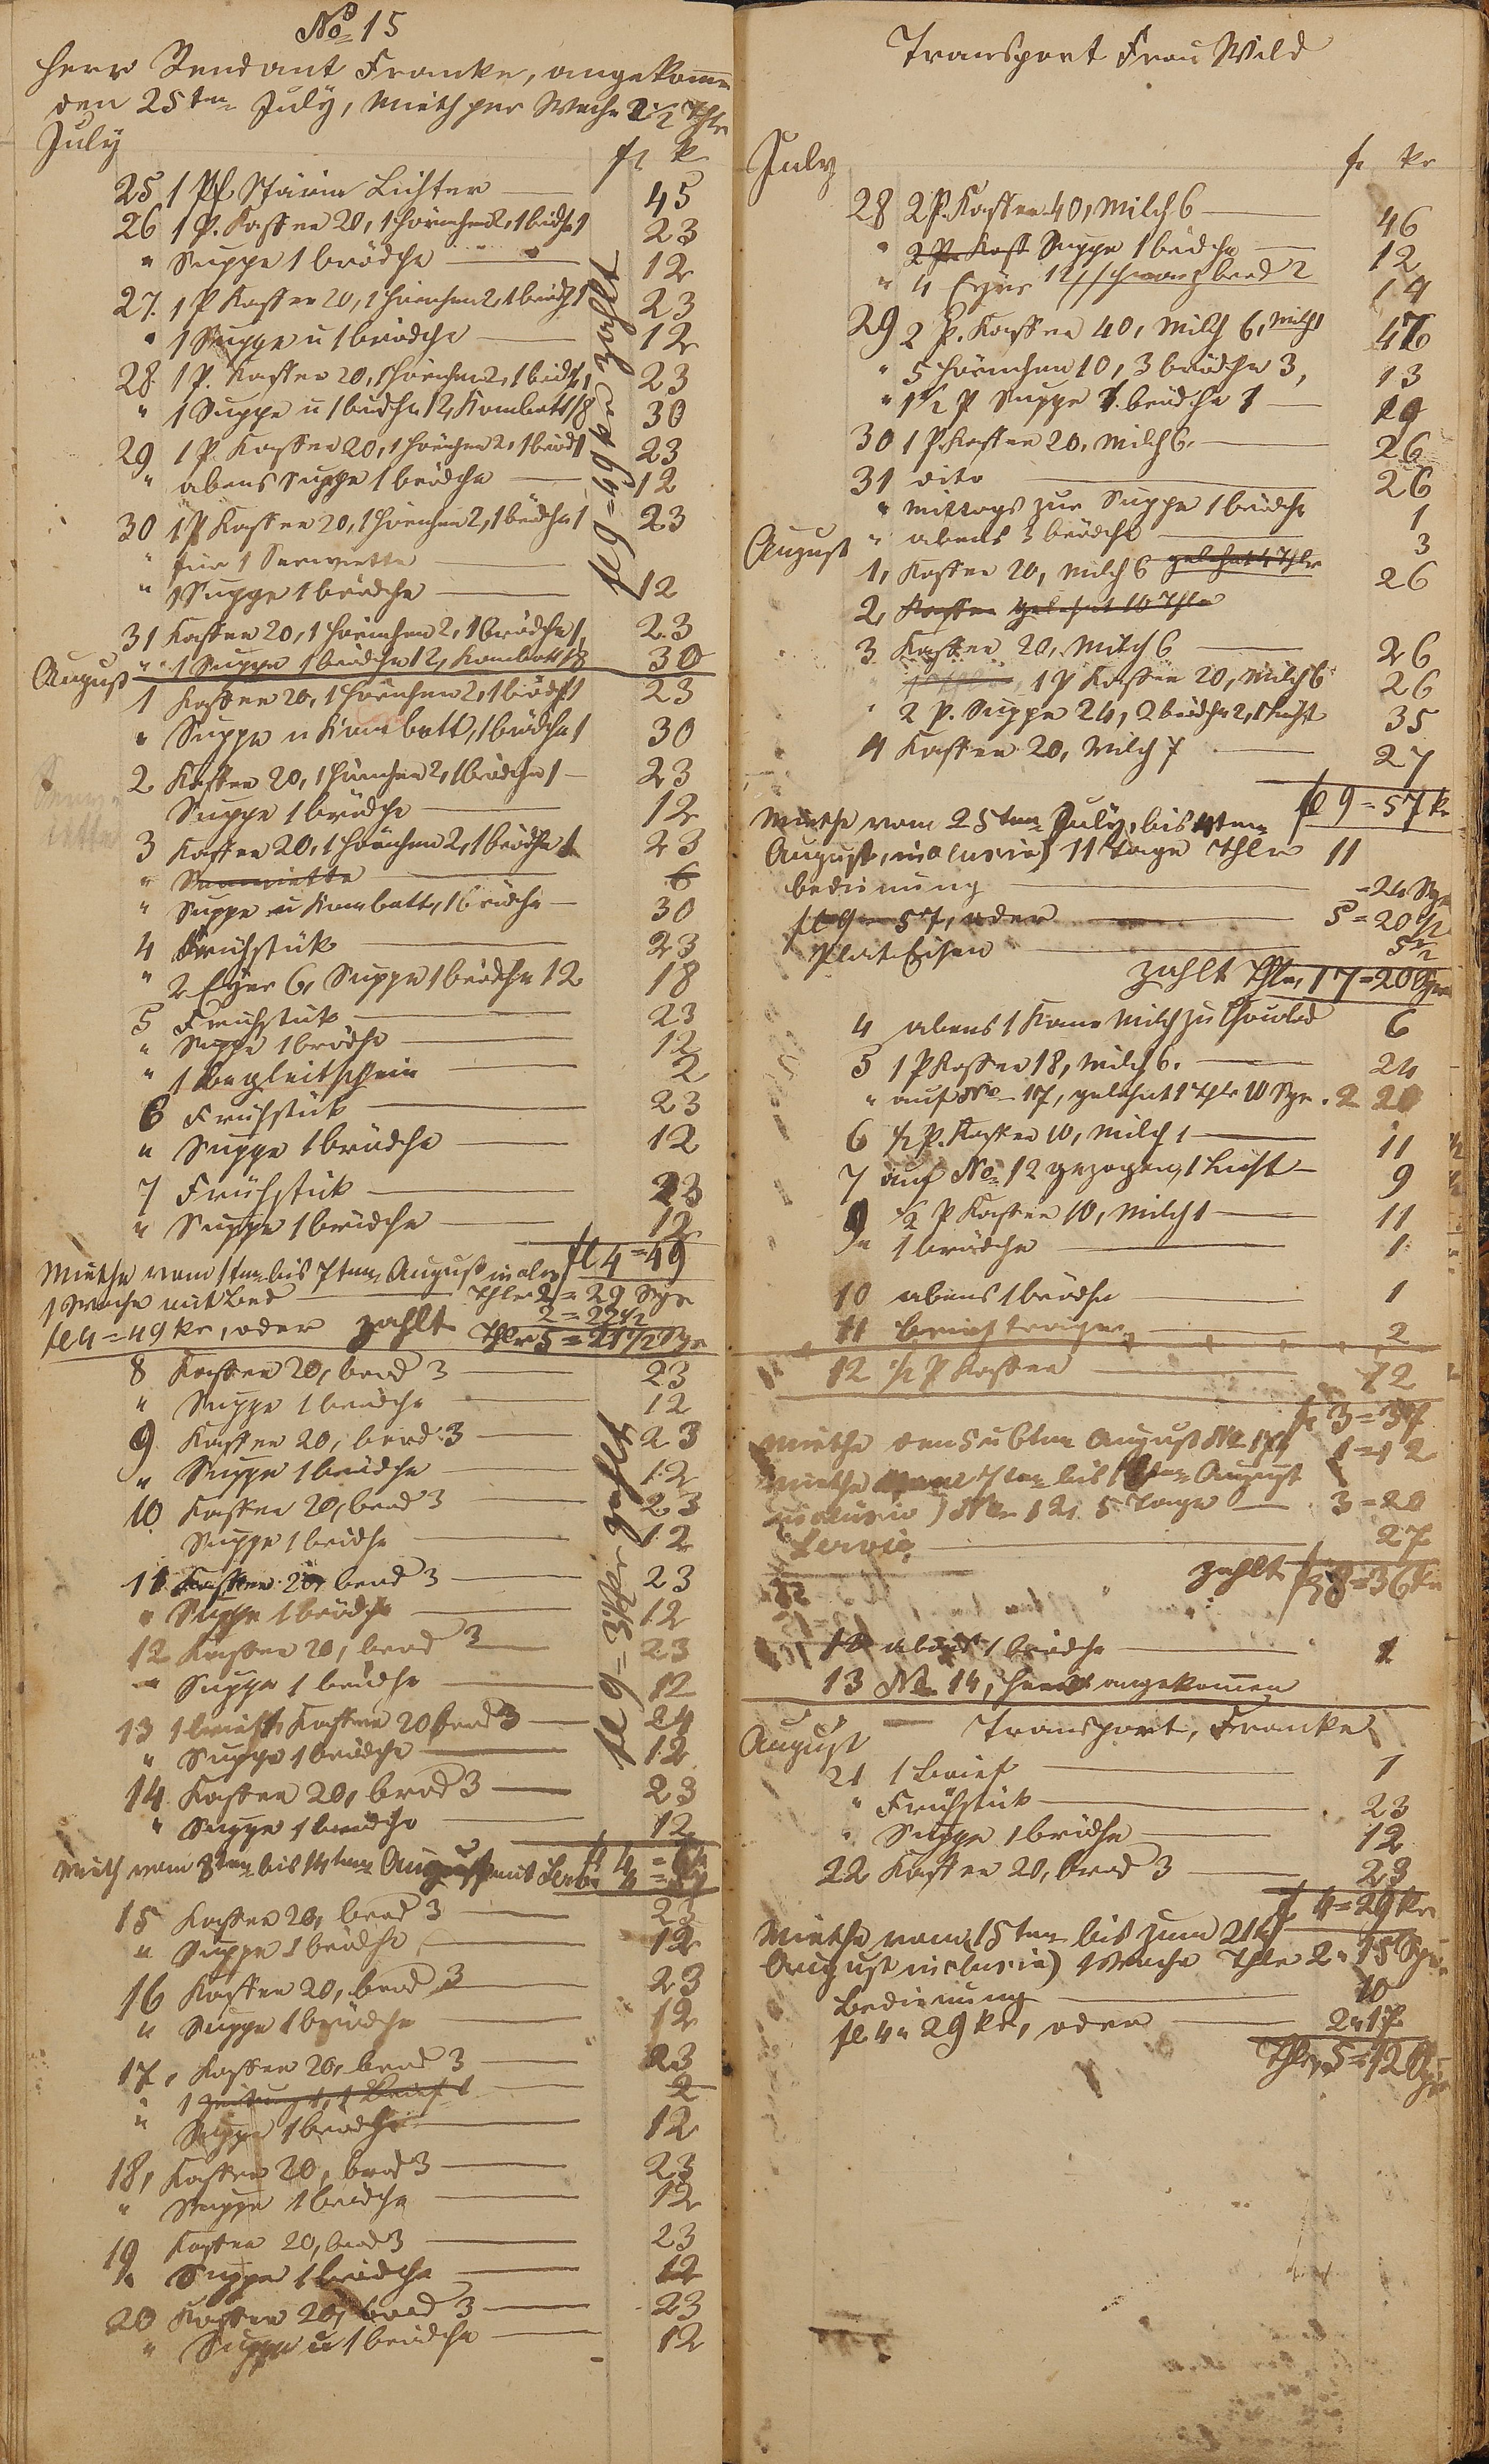 No 15
Herr Rendant Franke, angekomen
den 25ten July, Mieth per Woche 2 1/2 Thlr
July
fl k
25 1 Pf. Starin Lichter 45
26 1 P. Kaffee 20, 1 Hörnchen 2, 1 brödch 1 23
" Suppe 1 brödche 12
27. 1 P Kaffee 20, 1 Hörnchen 2, 1 brödch 1 23
" 1 Suppe u 1 brödche 12
28 1 P. Kaffee 20, 1 Hörnchen 2, 1 brödch 1 23
" 1 Suppe u 1 brödche 12, Kombott 18 30
29 1 P. Kaffee 20, 1 Hörnchen 2, 1 brödch 1 23
" abens Suppe 1 brödche 12
30 1 P Kaffee 20, 1 Hörnchen 2, 1 brödche 1 23
" für 1 Serviette
" 1 Suppe 1 brödche 12
31 Kaffee 20, 1 Hörnchen 2, 1 brödche 1, 23
" 1 Suppe 1 brödche 12, Kombott 18 30
fl 9 = 49 kr zahlt
August
1 Kaffee 20, 1 Hörnchen 2, 1 brödch 1 23
" Suppe u Kombott, 1 brödche 1 30
2 Kaffee 20, 1 Hörnchen 2, 1 brödche 1 23
Suppe 1 brödche 12
3 Kaffee 20, 1 Hörnchen 2, 1 brödche 1 23
" Serviette 6
" Suppe u Kombott, 1 brödche 30
4 Frühstük 23
" 2 Eyer 6, Suppe 1 brödche 12 18
5 Frühstük 23
" Suppe 1 brödche 12
" 1 begleitschein 2
6 Frühstük 23
" Suppe 1 brödche 12
7 Frühstük 23
" Suppe 1 brödche 12
fl 4 = 49
Miethe vom 1ten bis 7ten August
1 Woche mit Thlr 2 = 29 Sgr
2 = 22 1/2
fl 4 = 49 kr, oder zahlt Thlr 5 = 21 1/2 Sgr
8 Kaffee 20, brod 3 23
" Suppe 1 brödche 12
9 Kaffee 20, brod 3 23
" Suppe 1 brödche 12
10 Kaffee 20, brod 3 23
Suppe 1 brödche 12
11 Kaffee 20, brod 3 23
" Suppe 1 brödche 12
12 Kaffee 20, brod 3 23
" Suppe 1 brödche 12
13 1 brief 1, Kaffee 20 brod 3 24
" Suppe 1 brödche 12
14 Kaffee 20, brod 3 23
" Suppe 1 brödche 12
zahlt
Mieth vom 8ten bis 14ten August mit
15 Kaffee 20, brod 3 23
" Suppe 1 brödche 12
16 Kaffee 20, brod 3 23
" Suppe 1 brödche 12
17, Kaffee 20, brod 3 23
" 1 Zeitung 1, 1 Brief 1 2
" Suppe 1 brödche 12
18, Kaffee 20, brod 3 23
" Suppe 1 brödche 12
19 Kaffee 20, brod 3 23
" Suppe 1 brödche 12
20 Kaffee 20, brod 3 23
" Suppe u 1 brödche 12
Transport Frau Wild
July
fl kr
28 2 P. Kaffee 40, Milch 6 46
" 2 P. Kaff Suppe 1 brödche 12
" 4 Eyer 12, schwarz brod 2 14
29 2 P. Kaffee 40, Milch 6, Milch 1 47
" 5 Hörnchen 10, 3 brödche 3, 13
" 1 1/2 P Suppe 1 brödche 1 19
30 1 P. Kaffee 20, Milch 6. 26
31 dito 26
" mittags zur Suppe 1 brödche 1
" abens 3 brödche 3
August
1, Kaffee 20, Milch 6 gelehnt 4 Thlr 26
2, Kaffee gelehnt 10 Thlr
3 Kaffee 20, Milch 6 26
1 P Kaffee 20, Milch 6 26
" 2 P. Suppe 24, 2 brödche 2, 1 Licht 35
4 Kaffee 20, Milch 7 27
fl 9 = 57 kr
Miethe vom 25ten July, bis 4ten
August, inclusive) 11 Tage Thlr 11
bedienung = 24 Sgr
fl 9 = 57, oder 5 = 20 1/2
Plat Eisen 5 1/2
zahlt Thlr, 17 = 20 Sgr
4 abens 1 Kane Milch zu Choulad 6
5 1 P Kaffee 18, Milch 6. 24
" auf No 17, gelehnt 1 Thlr 10 Sgr. 2 20
6 1/2 P. Kaffee 10, Milch 1 11
7 auf No 12 gezogen, 1 Licht 9
9 1/2 P Kaffee 10, Milch 1 11
" 1 brödche 1
10 abens 1 brödche 1
11 2
12 1/2 P Kaffee 12
fl 3 = 37
Miethe den 5 u 6ten August No 17 1 = 12
Miethe vom 7ten bis August
inclusive) No 12, 5 Tage 3 = 20
Servic 27
zahlt fl 8 = 36 kr
12 abens 1 brödche 1
13 No 14, angekomen
Transport, Franke
August
21 1 brief 1
" Frühstük 23
" Suppe 1 brödche 12
22 Kaffee 20, brod 3 23
fl 4 = 29 kr
Miethe vom 15ten bis zum 21t
August inclusive) 1 Woche Thlr 2 = 15 Sgr
Bedienung 10
fl 4 = 29 kr, oder 2 = 17
Thlr 5 = 12 Sgr